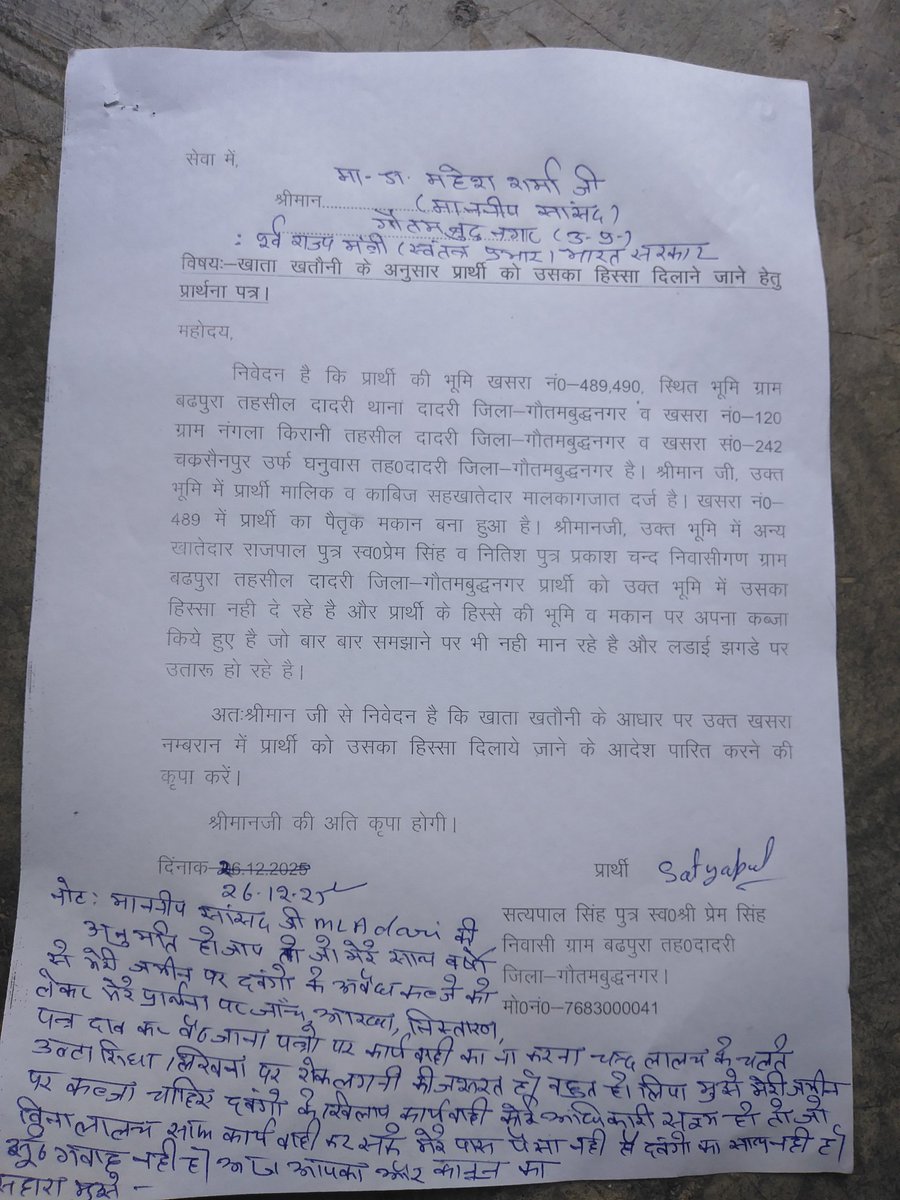 सेवा में,
मा- डा. महेश शर्मा जी
श्रीमान............(माननीय सांसद)
गौतम बुद्ध नगर (उ-प्र-)
: पूर्व राज्य मंत्री (स्वतन्त्र प्रभार) भारत सरकार
विषयः–खाता खतौनी के अनुसार प्रार्थी को उसका हिस्सा दिलाने जाने हेतु
प्रार्थना पत्र।
महोदय,
निवेदन है कि प्रार्थी की भूमि खसरा नं0–489,490, स्थित भूमि ग्राम
बढपुरा तहसील दादरी थाना दादरी जिला–गौतमबुद्धनगर व खसरा नं0–120
ग्राम नंगला किरानी तहसील दादरी जिला–गौतमबुद्धनगर व खसरा सं0–242
चकसैनपुर उर्फ घनुवास तह0दादरी जिला–गौतमबुद्धनगर है। श्रीमान जी, उक्त
भूमि में प्रार्थी मालिक व काबिज सहखातेदार मालकागजात दर्ज है। खसरा नं0–
489 में प्रार्थी का पैतृक मकान बना हुआ है। श्रीमानजी, उक्त भूमि में अन्य
खातेदार राजपाल पुत्र स्व0प्रेम सिंह व नितिश पुत्र प्रकाश चन्द निवासीगण ग्राम
बढपुरा तहसील दादरी जिला–गौतमबुद्धनगर प्रार्थी को उक्त भूमि में उसका
हिस्सा नही दे रहे है और प्रार्थी के हिस्से की भूमि व मकान पर अपना कब्जा
किये हुए है जो बार बार समझाने पर भी नही मान रहे है और लडाई झगडे पर
उतारू हो रहे है।
अतःश्रीमान जी से निवेदन है कि खाता खतौनी के आधार पर उक्त खसरा
नम्बरान में प्रार्थी को उसका हिस्सा दिलाये जाने के आदेश पारित करने की
कृपा करें।
श्रीमानजी की अति कृपा होगी।
दिंनाक–26.12.2025
26.12.25
प्रार्थी Satyapal
सत्यपाल सिंह पुत्र स्व0श्री प्रेम सिंह
निवासी ग्राम बढपुरा तह0दादरी
जिला–गौतमबुद्धनगर।
मो0नं0–7683000041
नोट: माननीय सांसद जी MLA की
अनुमति हो आप तो जो मेरे सात वर्षो
से मेरी जमीन पर दबंगो के अवैध कब्जे को
लेकर मेरे प्रार्थना पर जाँच, आख्या, निस्तारण,
पत्र दाब कर बैठ जाना पत्रो पर कार्यवाही का ना करना चन्द लालच के चलते
उल्टा सिधा लिखना पर रोक लगनी की जरूरत है। बहुत हो लिया मुझे मेरी जमीन
पर कब्जा चाहिए दबंगो के खिलाप कार्यवाही कोई अधिकारी सक्षम हो तो जो
बिना लालच कार्यवाही कर सके मेरे पास पैसा नही है दबंगो का साथ नही है।
गवाह नही है। आपका और कानून का
सहारा